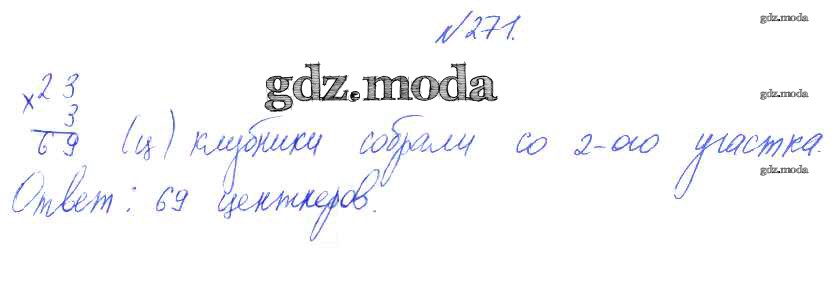 №271.
gdz.moda
gdz.moda
gdz.moda
×23
3
69 (ц) клубники собрали со 2-ого участка.
gdz.moda
Ответ: 69 центнеров.